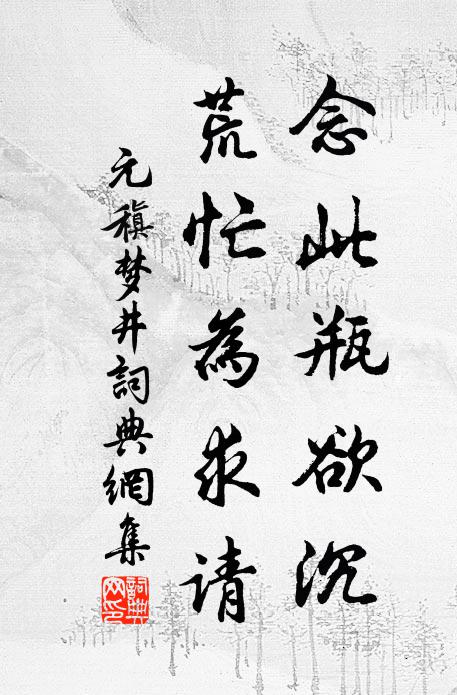 念此瓶欲沉
荒忙為求请
元稹梦井詞典網集